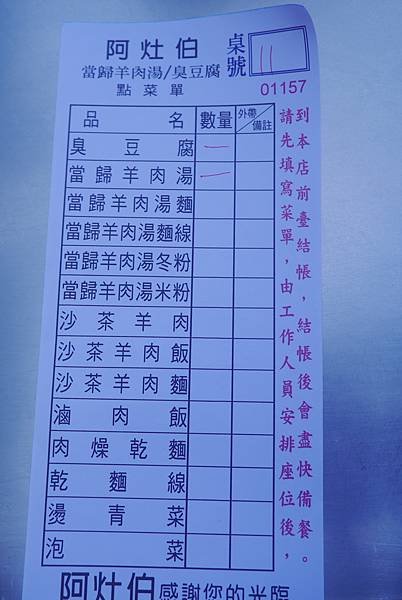 阿灶伯
當歸羊肉湯/臭豆腐
點菜單
桌號
11
01157
品名 數量 外帶/備註
臭豆腐 一
當歸羊肉湯 一
當歸羊肉湯麵
當歸羊肉湯麵線
當歸羊肉湯冬粉
當歸羊肉湯米粉
沙茶羊肉
沙茶羊肉飯
沙茶羊肉麵
滷肉飯
肉燥乾麵
乾麵線
燙青菜
泡菜
請先填寫菜單，由工作人員安排座位後，
到本店前臺結帳，結帳後會盡快備餐。
阿灶伯感謝您的光臨